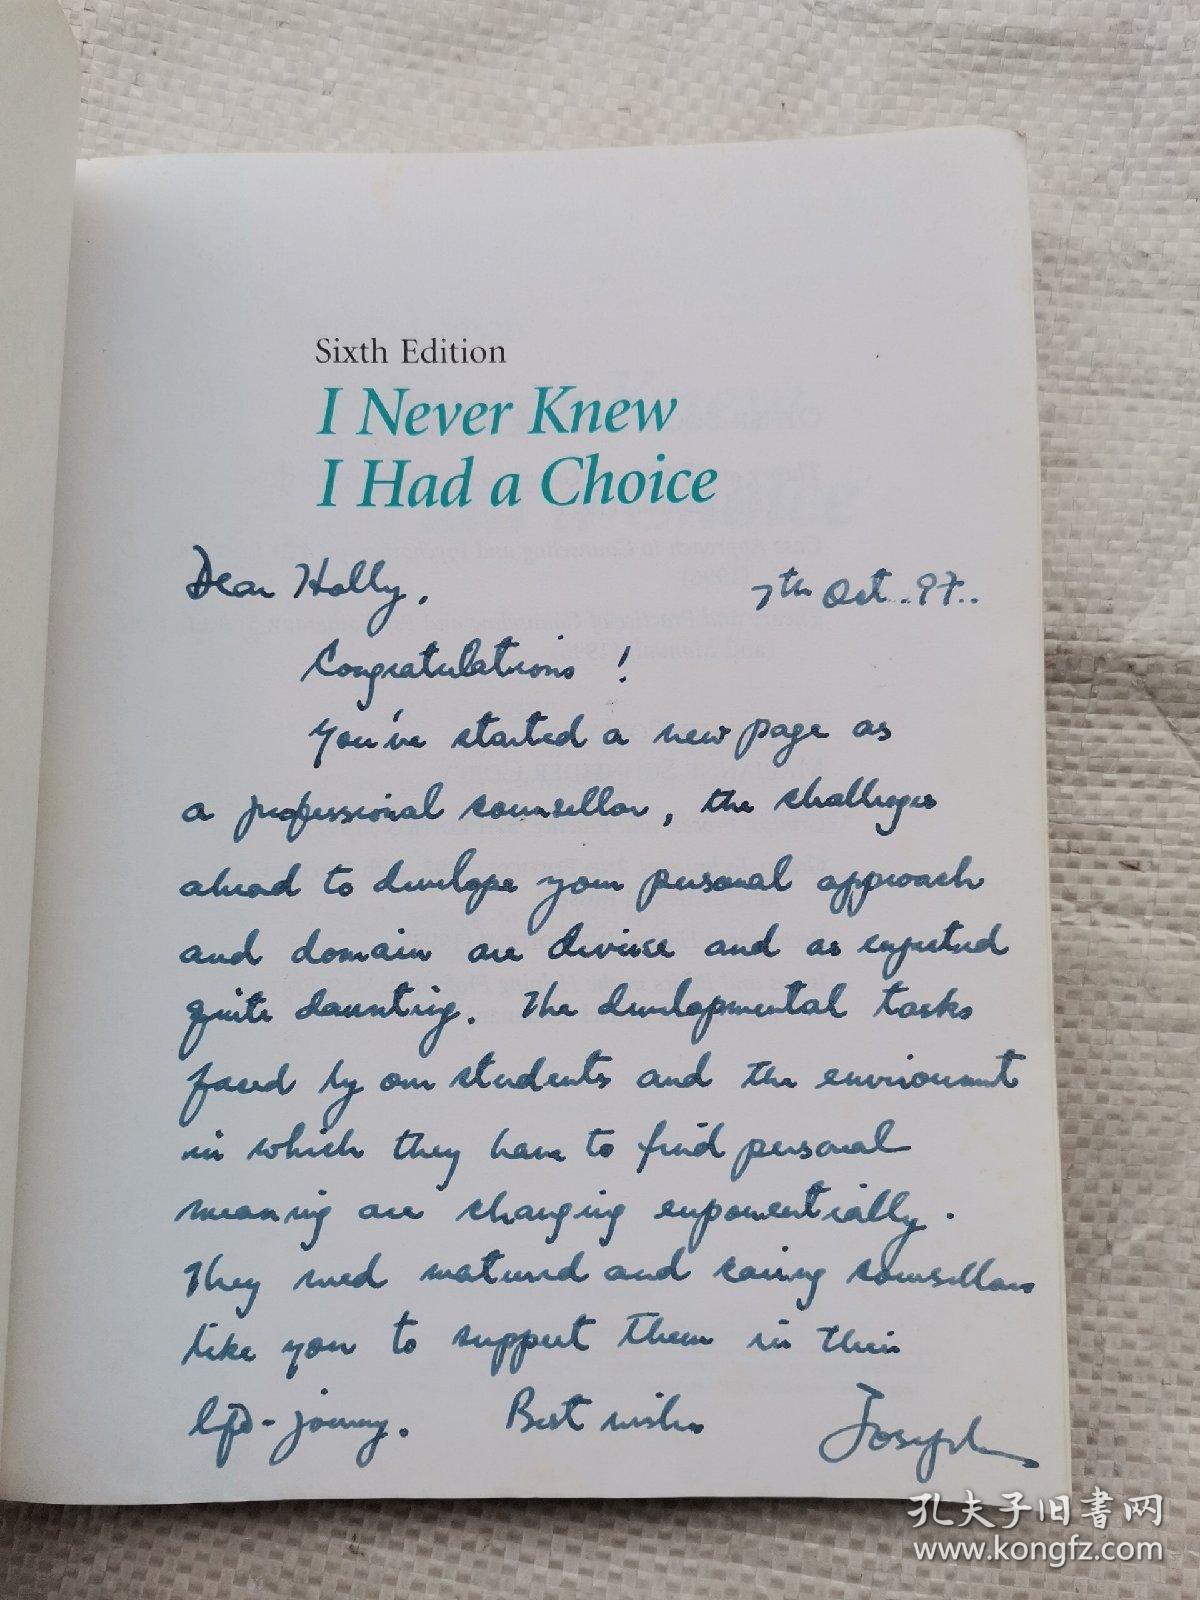 Sixth Edition
I Never Knew
I Had a Choice
Dear Holly, 7th Oct..97..
Congratulations!
You've started a new page as
a professional counsellor, the challenges
ahead to develope your personal approach
and domain are diverse and as expected
quite daunting. The developmental tasks
faced by our students and the environment
in which they have to find personal
meaning are changing exponentially.
They need matured and caring counsellors
like you to support them in their
life-journey. Best wishes Joseph
孔夫子旧书网
www.kongfz.com